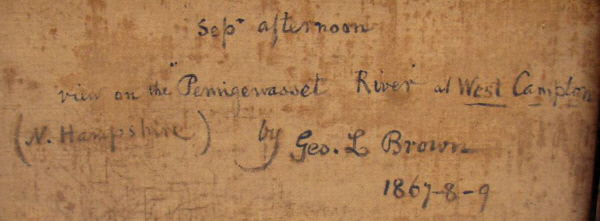 Sepr afternoon
view on the "Pemigewasset River" at West Campton
(N. Hampshire) by Geo. L Brown
1867-8-9